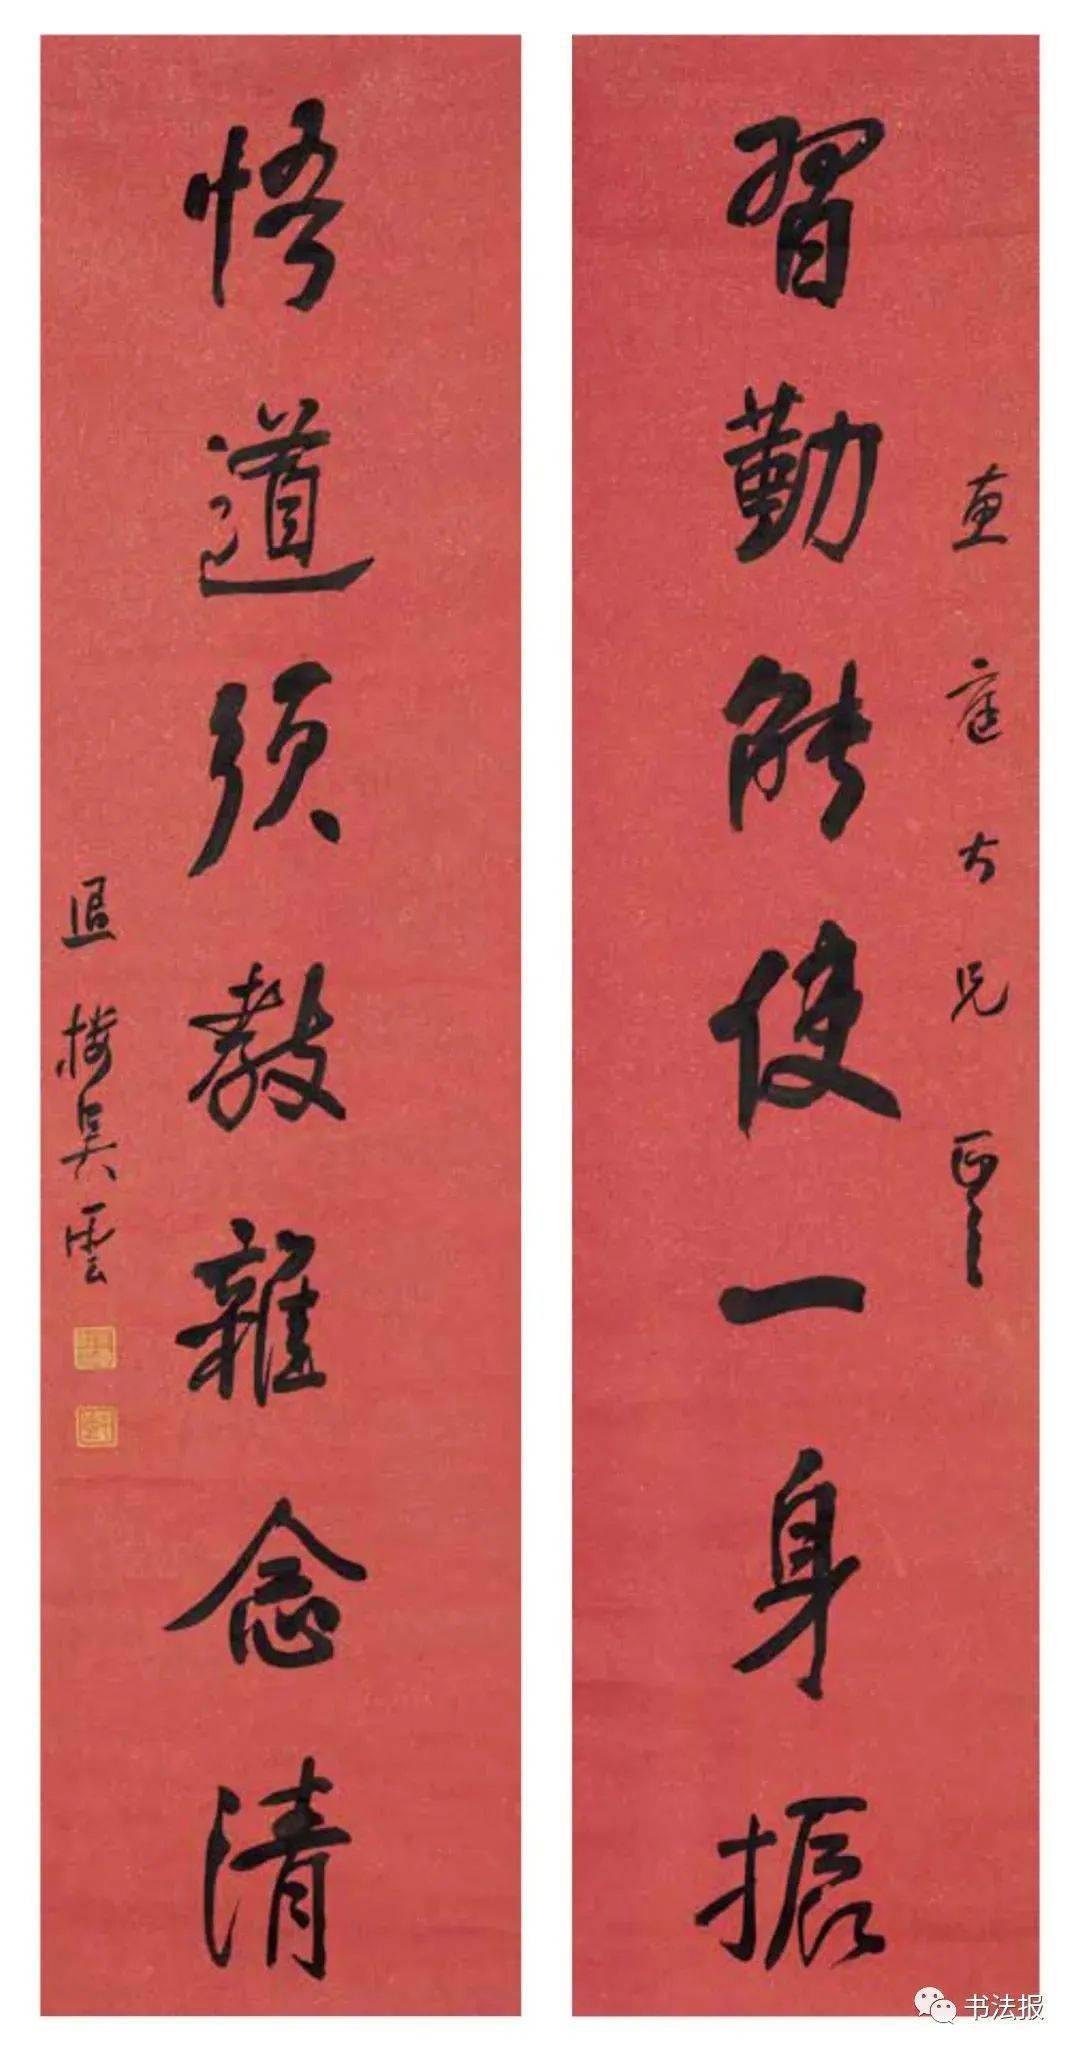 直庭大兄正之
習勤能使一身振
悟道須教雜念清
退樓吳雲
书法报